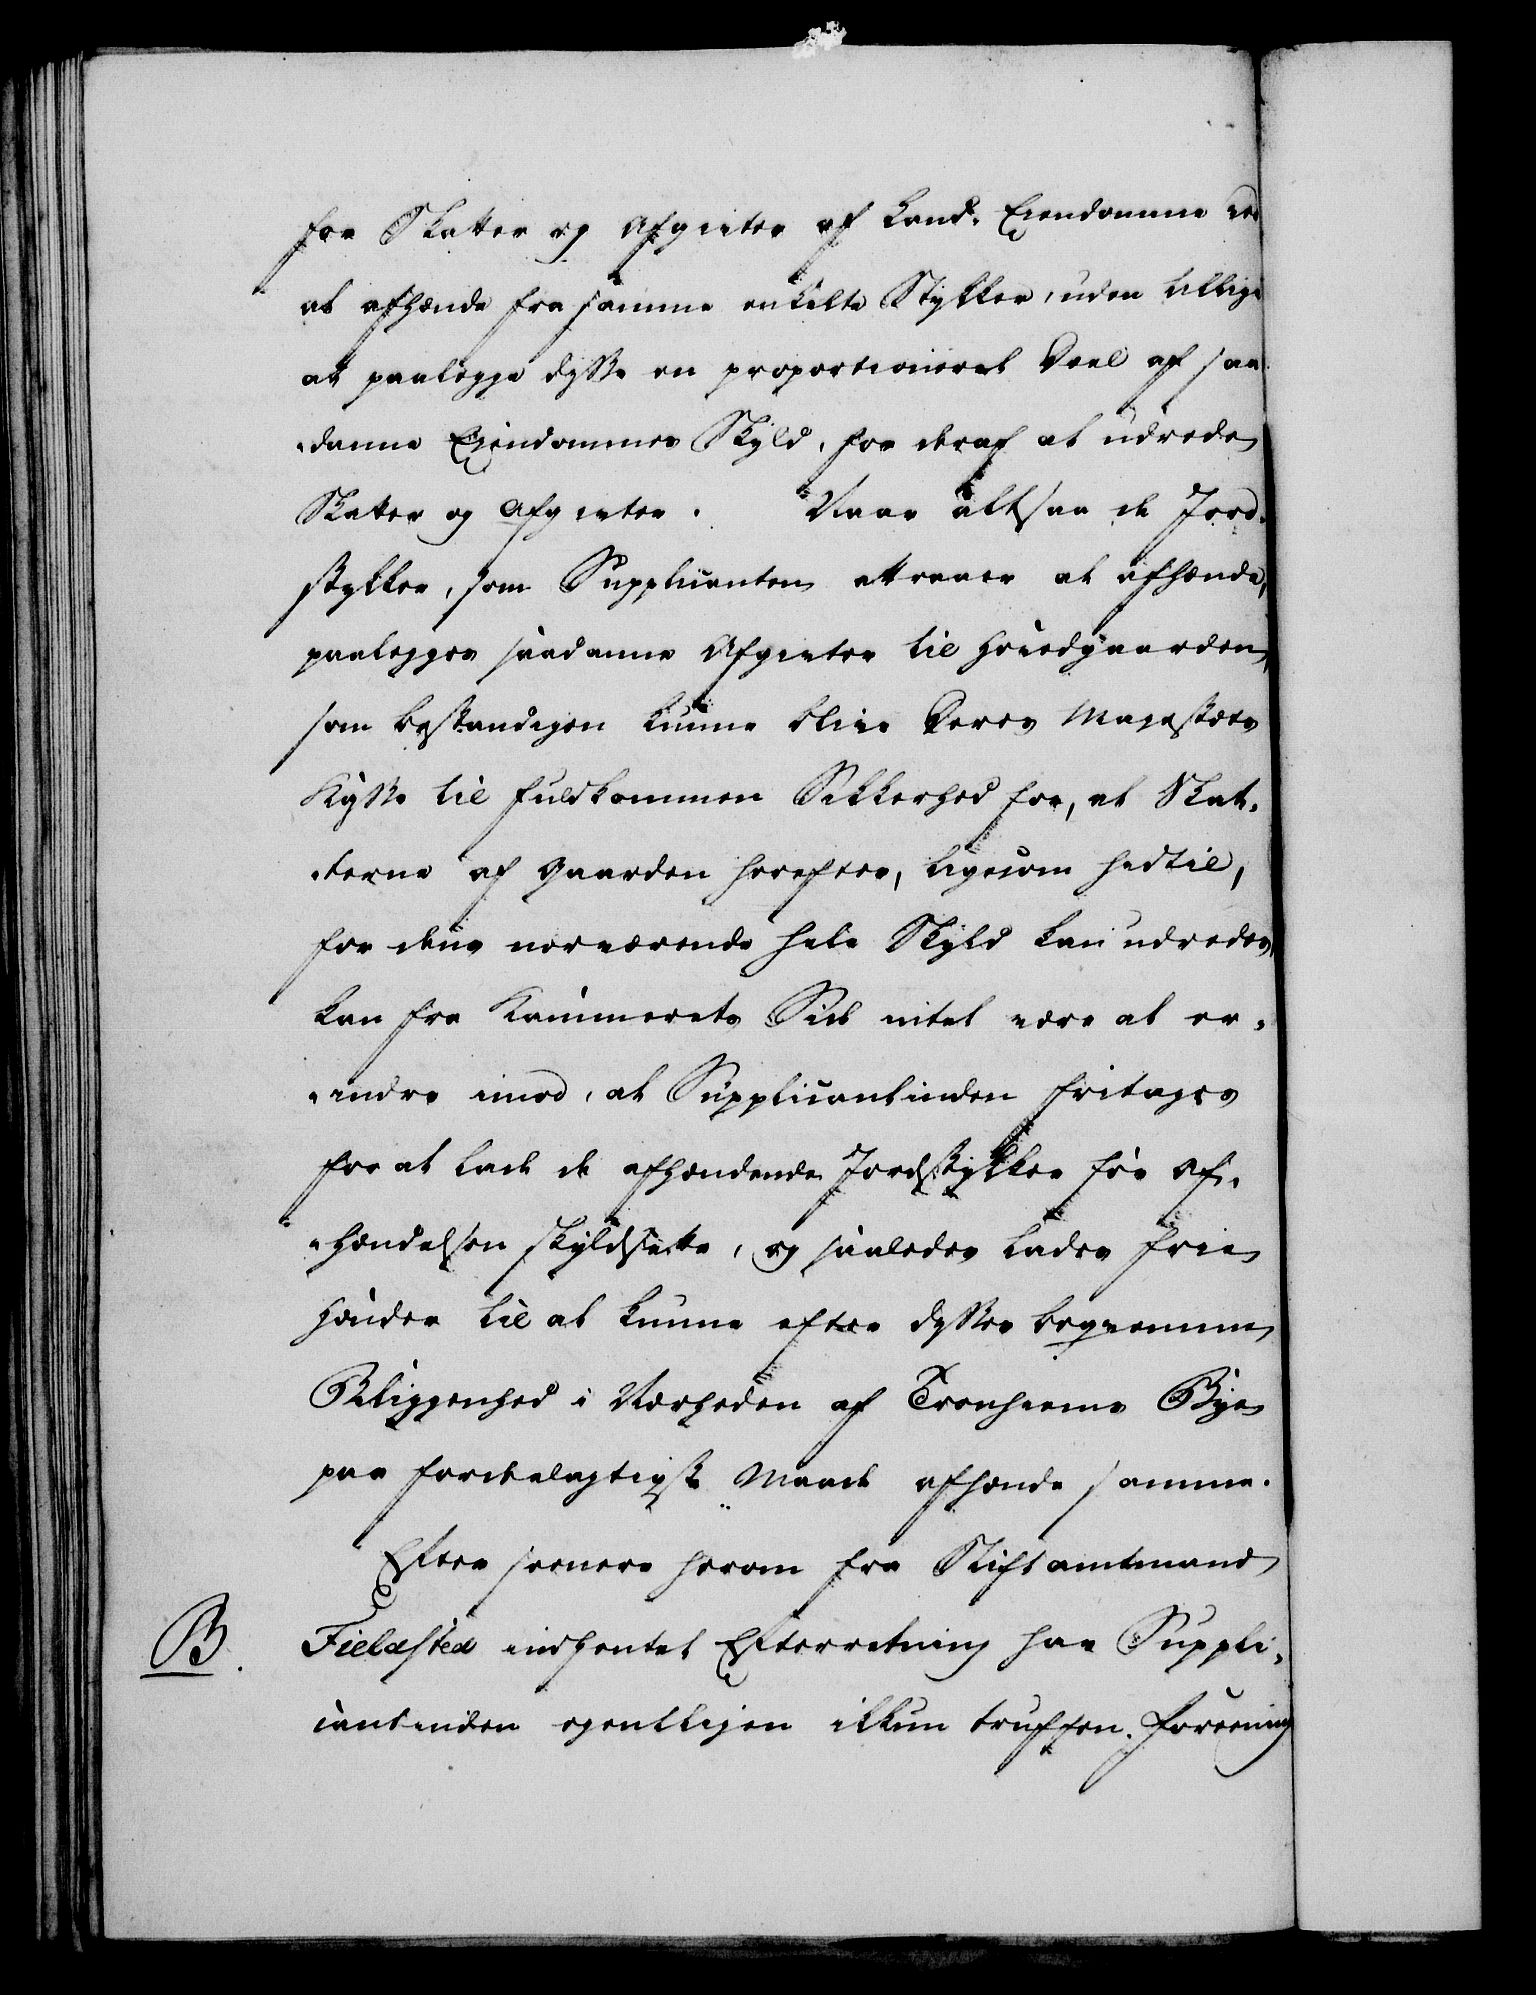 for Skatter og Afgivter af Land- Eiendomme ved
at afhænde fra samme enkelte Stykker, uden tillige
at paalegge disse en proportioneret Deel af saa-
danne Eiendommes Skyld, for deraf at udrede
Skatter og Afgivter. Naar altsaa de Jord-
stykker, som Supplicanten attraaer at afhænde,
paalegges saadanne Afgivter til Hovedgaarden,
som bestandigen kunne blive Deres Majestæts
Kasse til fuldkommen Sikkerhed for, at Skat-
terne af Gaarden herefter, ligesom hidtil,
for dens nærværende hele Skyld kan udredes,
kan fra Kammerets Side intet være at er-
indre imod, at Supplicantinden fritages
for at lade de afhændende Jordstykker før Af-
hændelsen skyldsætte, og saaledes lades frie
Hænder til at kunne efter disses beqvemme
Beliggenhed i Nærheden af Tronhiems Bye
paa fordelagtigste Maade afhænde samme.
Efter senere herom fra Stiftamtmand
B. Fieldsted indhentet Efterretning har Suppli-
cantinden egentligen ikkun truffen Foreening